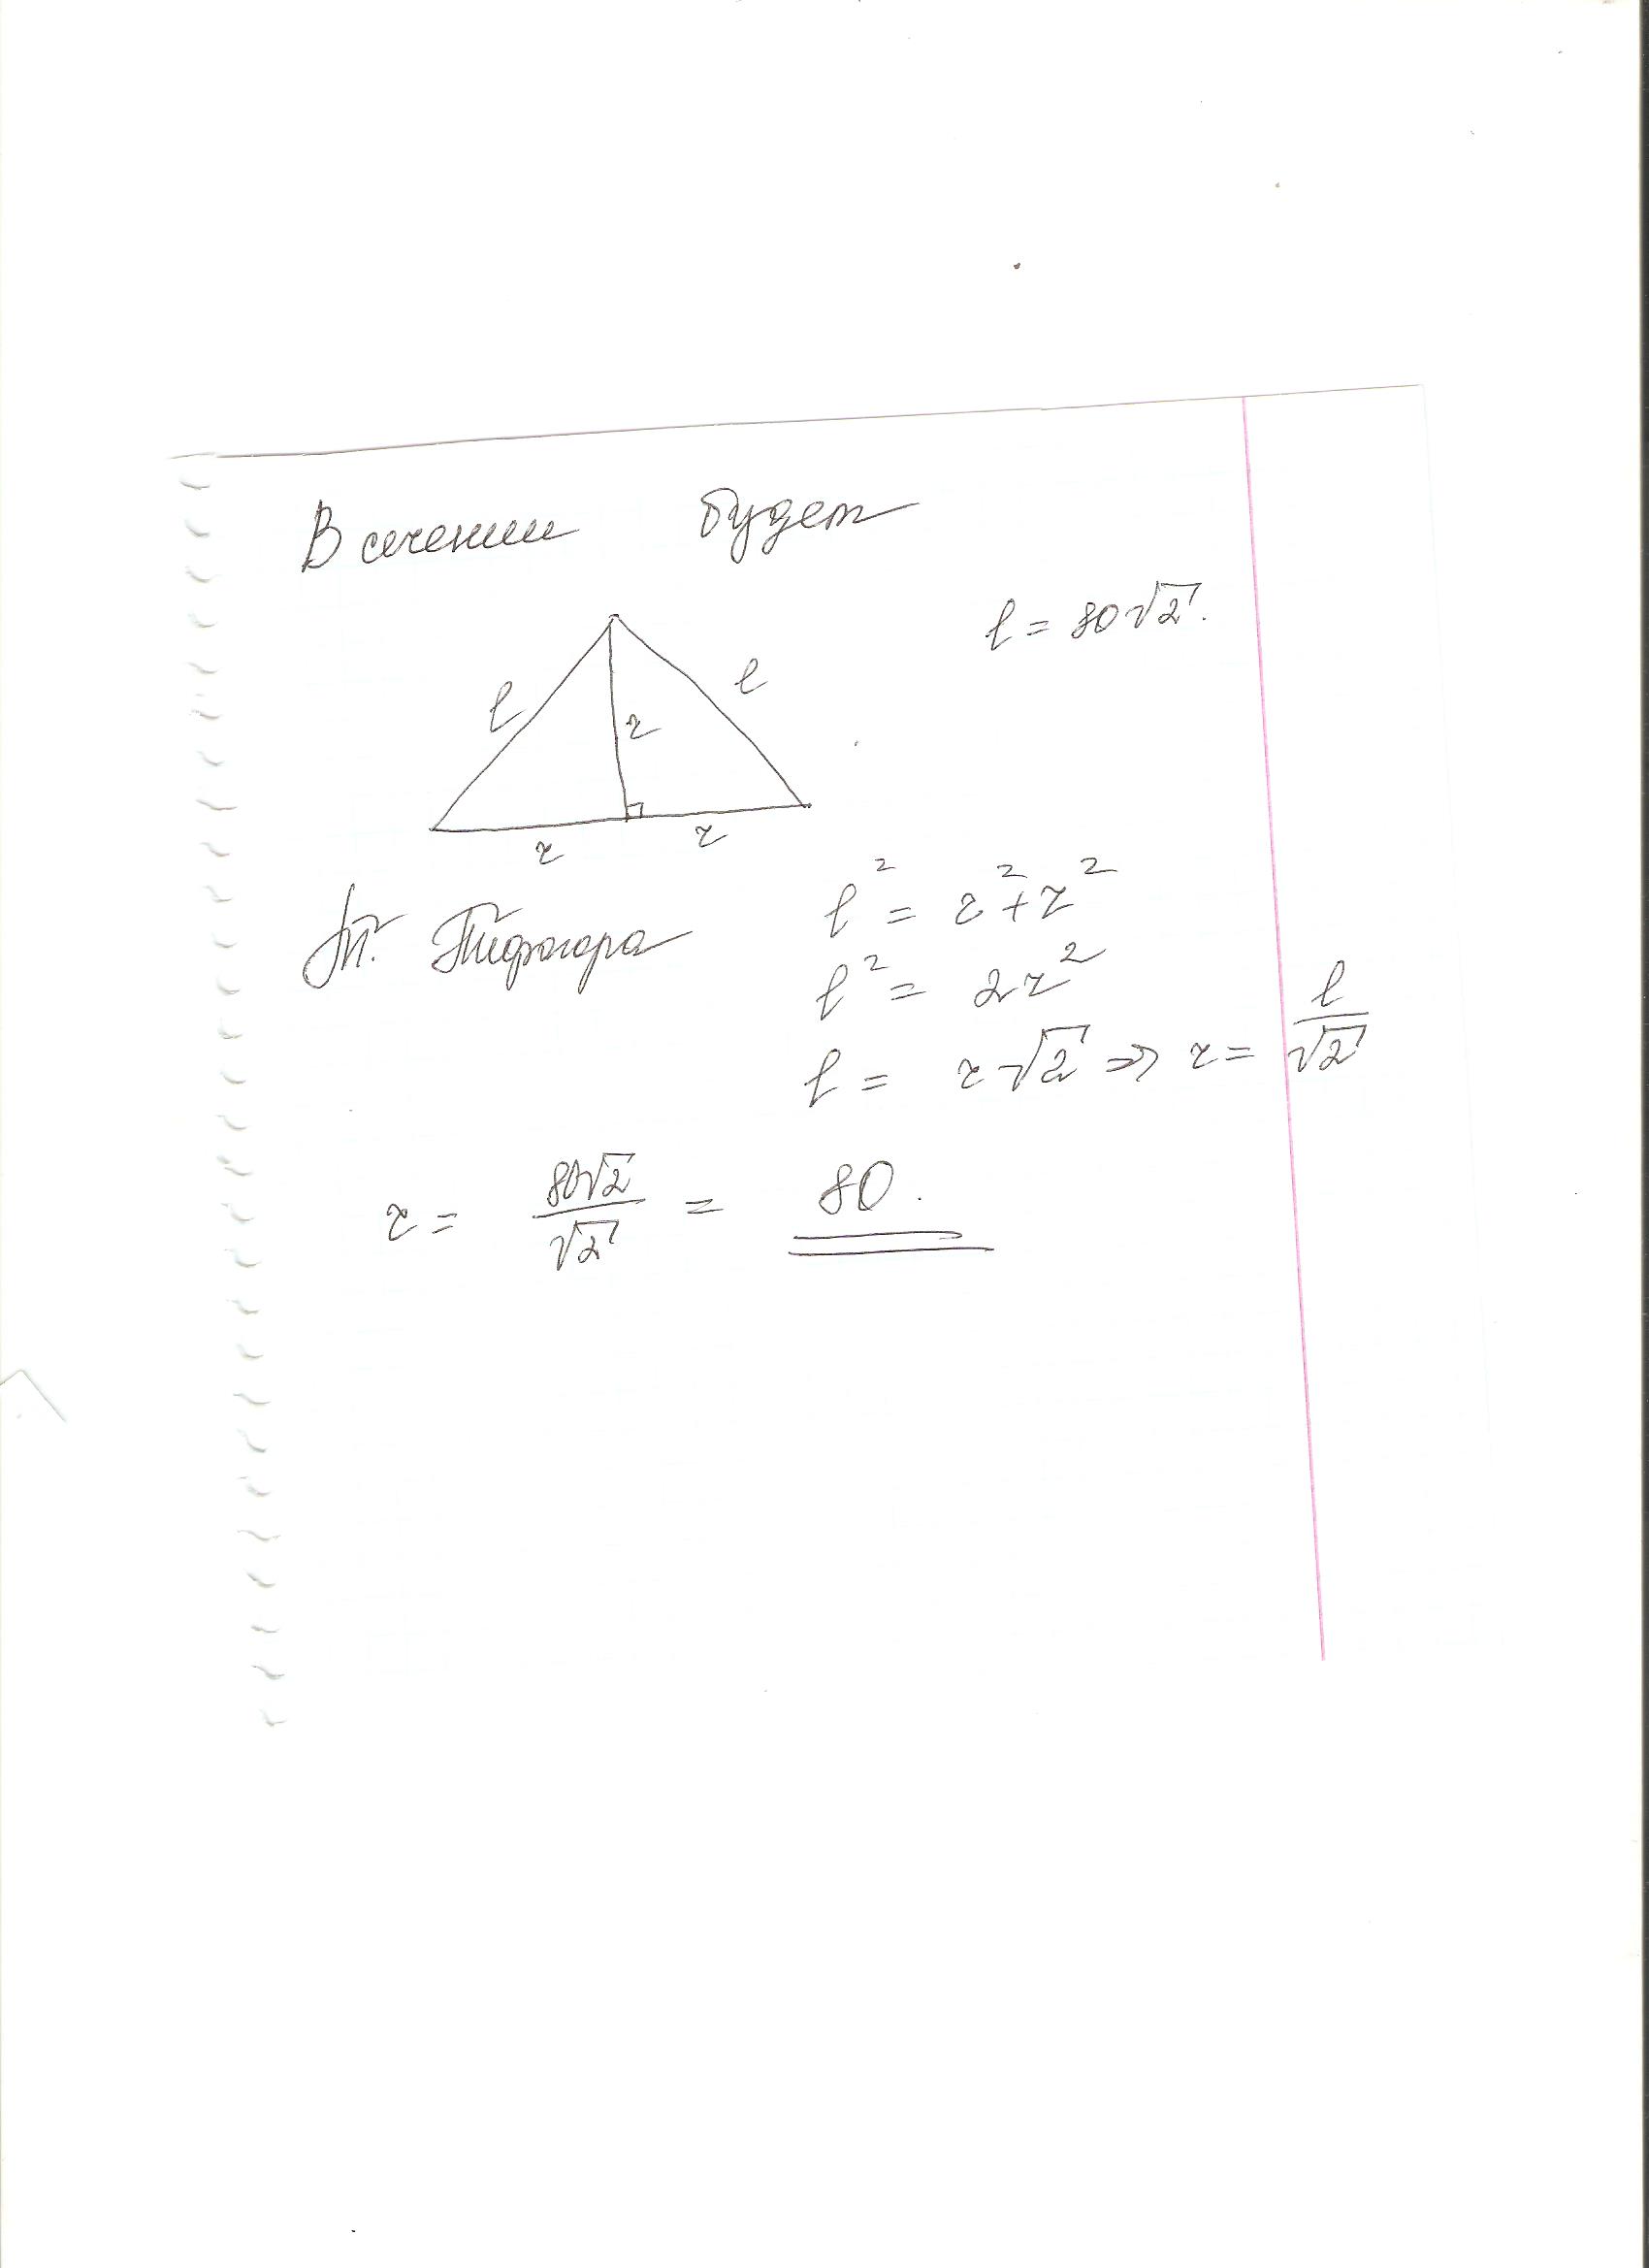 В сечении будет
l = 80√2.
l
l
r
r
r
Т. Пифагора
l² = r² + r²
l² = 2r²
l = r√2 ⇒ r = l/√2
r = 80√2/√2 = 80.